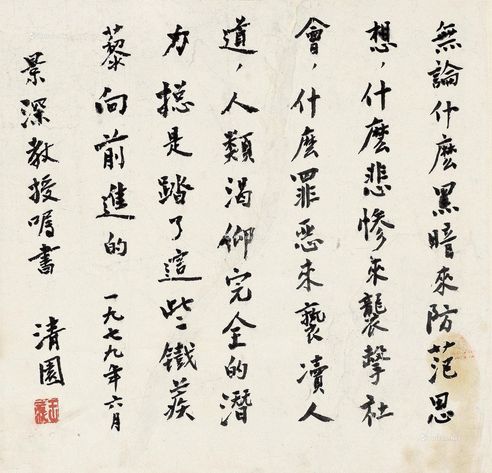 無論什麼黑暗來防范思
想，什麼悲慘來襲擊社
會，什麼罪惡來褻瀆人
道，人類渴仰完全的潛
力揔是踏了這些鐵蒺
藜向前進的
一九七九年六月
景深教授嘱書
清園